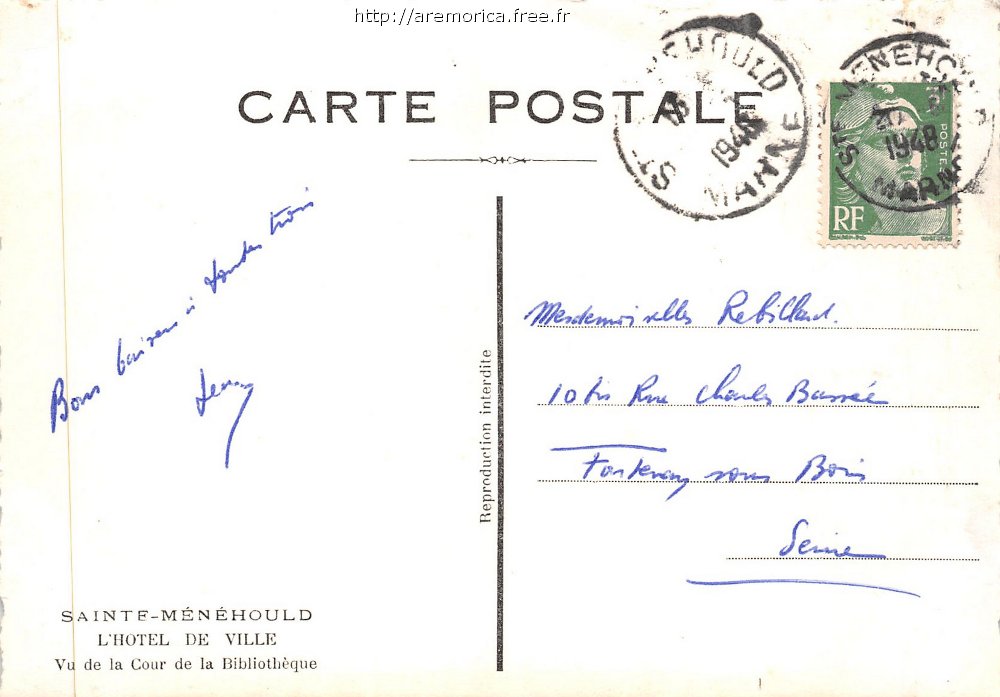 http://aremorica.free.fr
CARTE POSTALE
STE MENEHOULD
1948
MARNE
STE MENEHOULD
1948
MARNE
POSTES
RF
Bons baisers à toutes trois
Mesdemoiselles Rebillard.
10 bis Rue Charles Bassée
Fontenay sous Bois
Seine
Reproduction interdite
SAINTE-MÉNÉHOULD
L'HOTEL DE VILLE
Vu de la Cour de la Bibliothèque